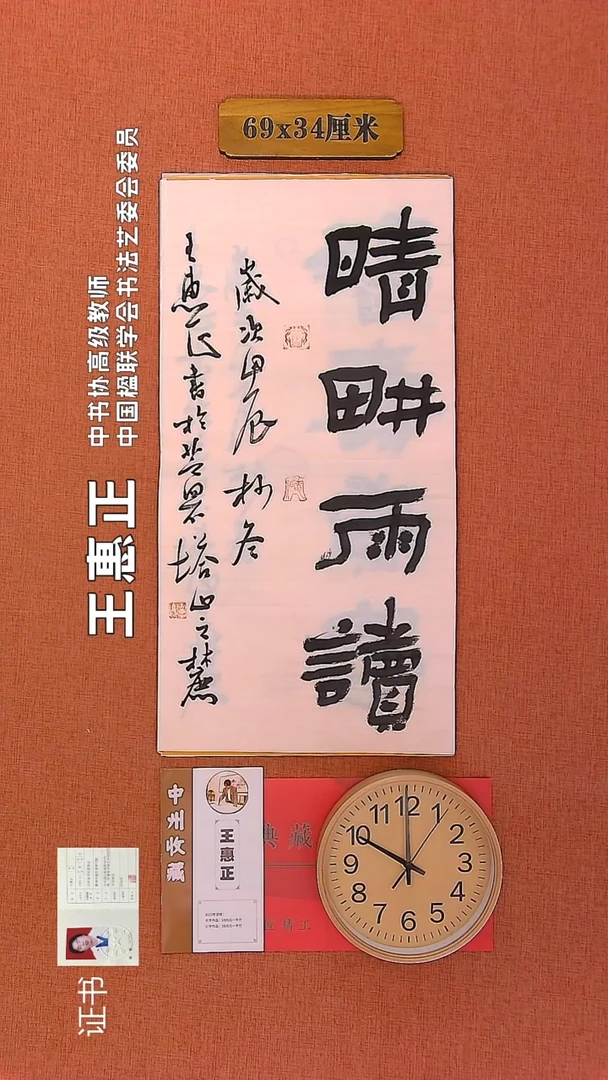 69x34厘米
晴畊雨讀
歲次甲辰杪冬
王惠正書於塔山之麓
中书协高级教师
中国楹联学会书法艺委会委员
王惠正
中州收藏
王惠正
典藏
证书
12
1
2
3
4
5
6
7
8
9
10
11